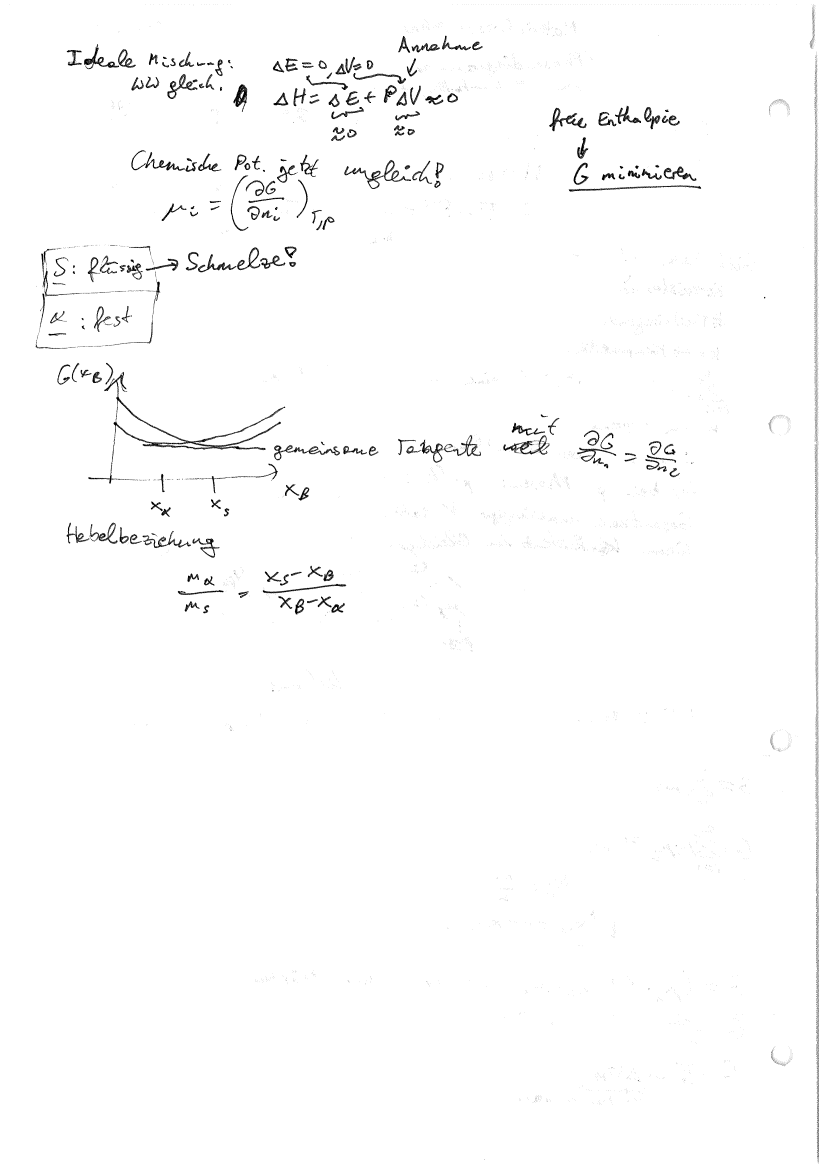 Annahme
↓
Ideale Mischung: ΔE=0, ΔV=0
WW gleich. ΔH = ΔE + PΔV ≈ 0
≈0 ≈0
freie Enthalpie
↓
G minimieren
Chemische Pot. jetzt ungleich!
μi = (∂G/∂ni)T,p
S: flüssig → Schmelze!
α: fest
G(xB)
gemeinsame Tangente mit ∂G/∂n1 = ∂G/∂n2
xα xs xB
Hebelbeziehung
mα/ms = (xs-xB)/(xB-xα)